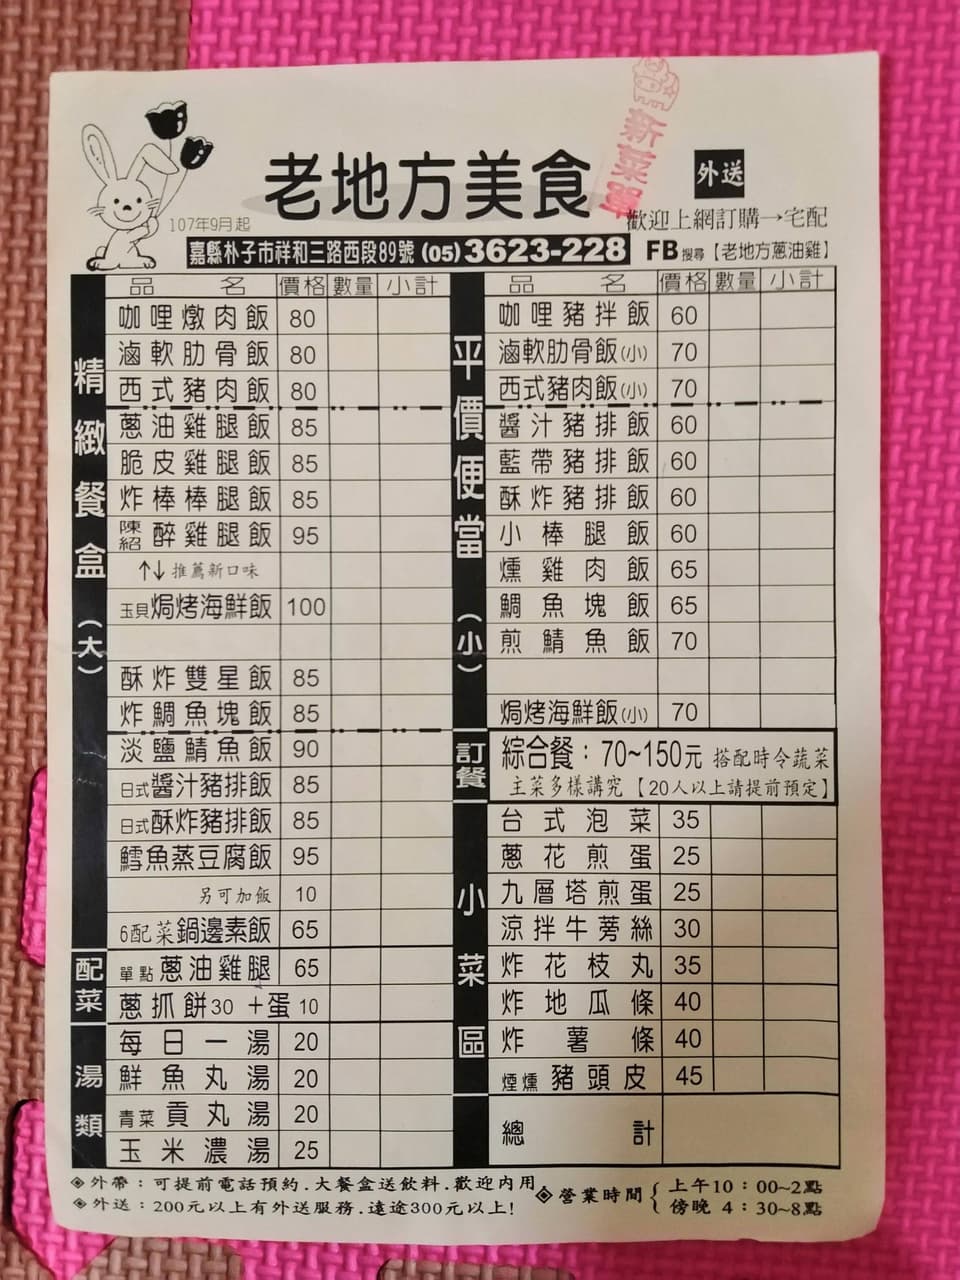 新菜單
老地方美食
外送
107年9月起
歡迎上網訂購→宅配
嘉縣朴子市祥和三路西段89號 (05) 3623-228
FB搜尋【老地方蔥油雞】
品名 價格 數量 小計
精緻餐盒（大）
咖哩燉肉飯 80
滷軟肋骨飯 80
西式豬肉飯 80
蔥油雞腿飯 85
脆皮雞腿飯 85
炸棒棒腿飯 85
陳紹醉雞腿飯 95
↑↓推薦新口味
玉貝焗烤海鮮飯 100
酥炸雙星飯 85
炸鯛魚塊飯 85
淡鹽鯖魚飯 90
日式醬汁豬排飯 85
日式酥炸豬排飯 85
鱈魚蒸豆腐飯 95
另可加飯 10
6配菜鍋邊素飯 65
配菜
單點蔥油雞腿 65
蔥抓餅30 +蛋 10
湯類
每日一湯 20
鮮魚丸湯 20
青菜貢丸湯 20
玉米濃湯 25
品名 價格 數量 小計
平價便當（小）
咖哩豬拌飯 60
滷軟肋骨飯(小) 70
西式豬肉飯(小) 70
醬汁豬排飯 60
藍帶豬排飯 60
酥炸豬排飯 60
小棒腿飯 60
燻雞肉飯 65
鯛魚塊飯 65
煎鯖魚飯 70
焗烤海鮮飯(小) 70
訂餐
綜合餐：70~150元 搭配時令蔬菜
主菜多樣講究【20人以上請提前預定】
小菜區
台式泡菜 35
蔥花煎蛋 25
九層塔煎蛋 25
涼拌牛蒡絲 30
炸花枝丸 35
炸地瓜條 40
炸薯條 40
煙燻豬頭皮 45
總計
◈外帶：可提前電話預約.大餐盒送飲料.歡迎內用
◈外送：200元以上有外送服務.遠途300元以上!
◈營業時間{上午10：00~2點
傍晚 4：30~8點